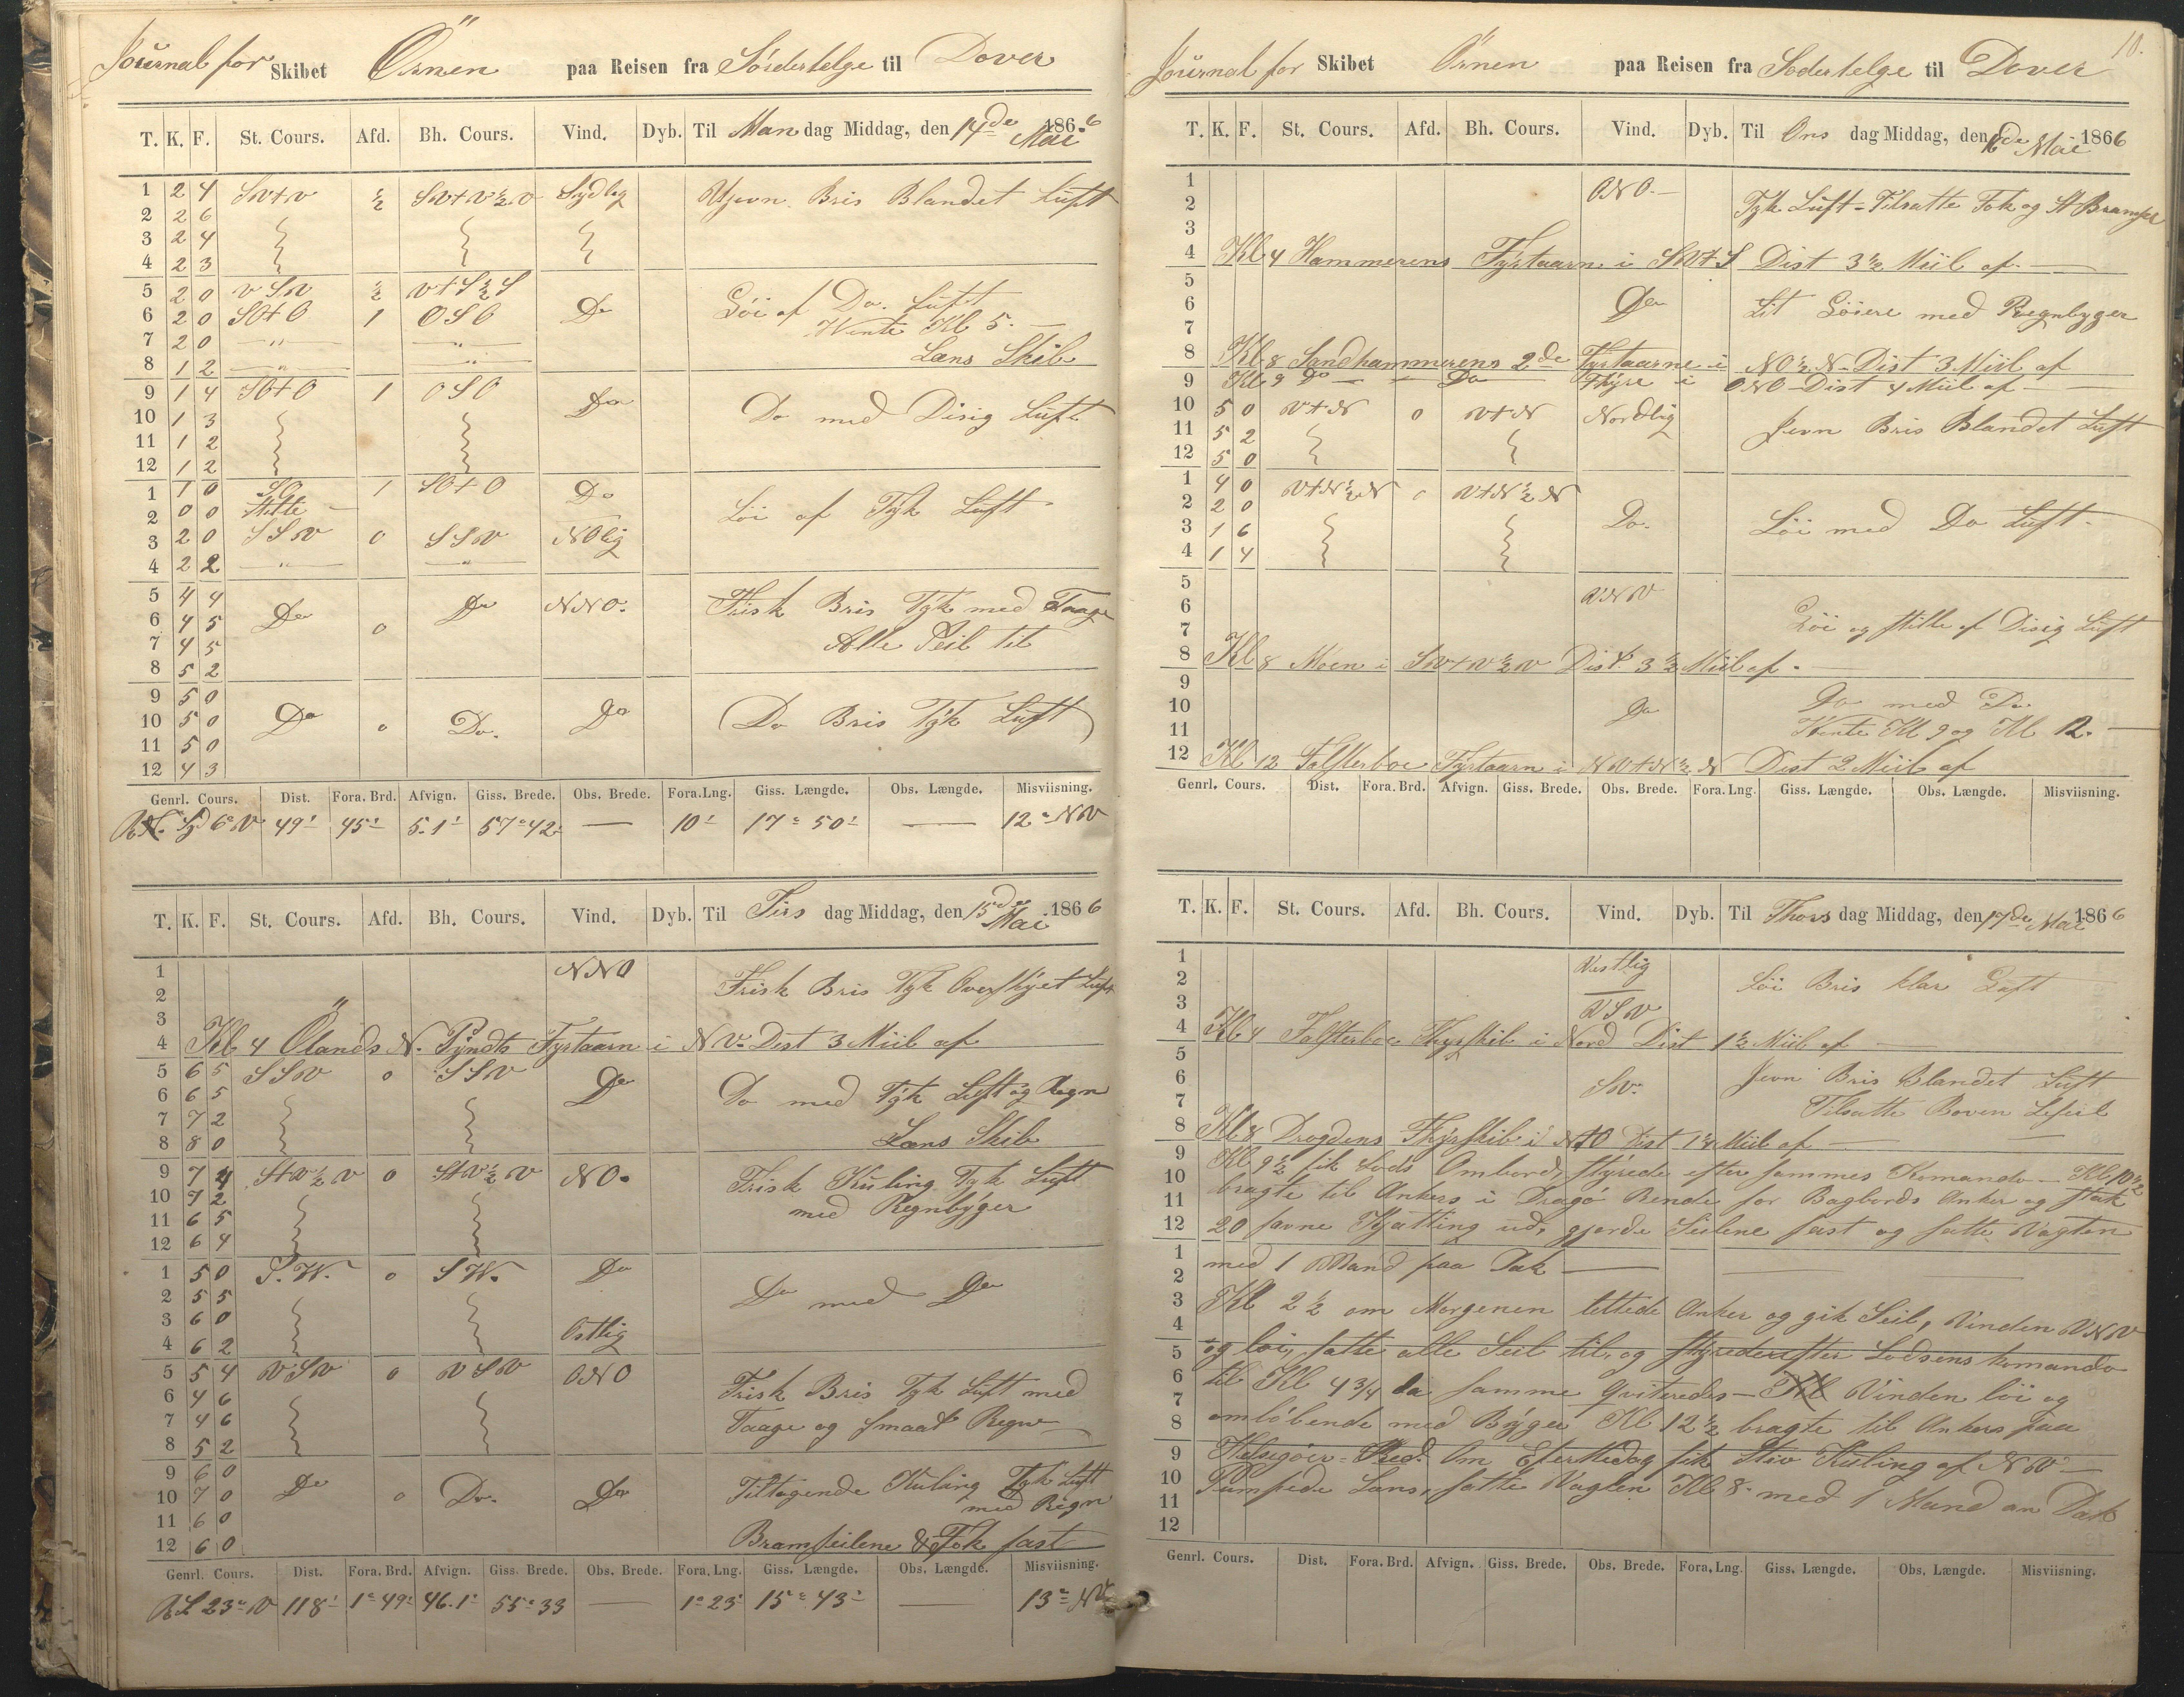 Journal for Skibet Örnen paa Reisen fra Södertelge til Dover
T. K. F. St. Cours. Afd. Bh. Cours. Vind. Dyb. Til Mandag Middag, den 14de Mai 1866
1 2 4 SVtV ½ SVtV½V Sydlig Ujevn Bris Blandet Luft
2 2 6
3 2 4
4 2 3
5 2 0 VSV ½ VtS½S
6 2 0 SOtO 1 OSO Do Löi af Do. Luft
7 2 0 — " — — " — Wente Kl 5. —
8 1 2 — " — — " — Læns Skib
9 1 4 SOtO 1 OSO Do
10 1 3 Do med Disig Luft
11 1 2
12 1 2
1 1 0 SO 1 SOtO Do
2 0 0 Stille — Löi af Tyk Luft
3 2 0 SSV 0 SSV NOlig
4 2 2 — " — — " —
5 4 4 Do Do NNO. Frisk Bris Tyk med Taage
6 4 5 0
7 4 5 Alle Seil til
8 5 2
9 5 0
10 5 0 Do 0 Do. Do Do Bris Tyk Luft
11 5 0
12 4 3
Genrl. Cours. Dist. Fora. Brd. Afvign. Giss. Brede. Obs. Brede. Fora. Lng. Giss. Længde. Obs. Længde. Misviisning.
6° V 49' 45' 5.1' 57°42' — 10' 17° 50' — 12° NV
T. K. F. St. Cours. Afd. Bh. Cours. Vind. Dyb. Til Tirsdag Middag, den 15de Mai 1866
1 NNO Frisk Bris Tyk Overskyet Luft
2
3
4 Kl 4 Ölands N. Pyndts Fyrtaarn i NV. Dist 3 Miil af
5 6 5 SSV 0 SSV Do
6 6 5 Do med Tyk Luft og Regn
7 7 2
8 8 0 Læns Skib
9 7 4 StV½V 0 StV½V NO. Frisk Kuling Tyk Luft
10 7 2 med Regnbyger
11 6 5
12 6 4
1 5 0 S.W. 0 SW. Do
2 5 5 Do med Do
3 6 0
4 6 2 Ostlig
5 5 4 VSV 0 VSV ONO
6 4 6 Frisk Bris Tyk Luft med
7 4 6 Taage og smaat Regn
8 5 2
9 6 0
10 7 0 Do 0 Do. Do Tiltagende Kuling Tyk Luft
11 6 0 med Regn
12 6 0 Bramseilene & Fok fast
Genrl. Cours. Dist. Fora. Brd. Afvign. Giss. Brede. Obs. Brede. Fora. Lng. Giss. Længde. Obs. Længde. Misviisning.
23° V 118' 1°49' 46.1' 55°33 — 1°23' 15° 43' — 13° NV
10.
Journal for Skibet Örnen paa Reisen fra Södertelge til Dover
T. K. F. St. Cours. Afd. Bh. Cours. Vind. Dyb. Til Onsdag Middag, den 16de Mai 1866
1 ONO. —
2 Tyk Luft - Tilsatte Fok og St Bramsel
3
4 Kl 4 Hammerens Fyrtaarn i SVtS Dist 3½ Miil af —
5
6 Do Lit Löiere med Regnbyger
7
8 Kl 8 Sandhammerens 2de Fyrtaarne i NO½N - Dist 3 Miil af
9 Kl 9 Do — " — Do — Fyre i ONO - Dist 4 Miil af —
10 5 0 VtN 0 VtN Nordlig
11 5 2 Jevn Bris Blandet Luft
12 5 0
1 4 0 VtN½N 0 VtN½N
2 2 0
3 1 6 Do. Löi med Do Luft.
4 1 4
5
6 VNV
7 Löi og stille af Disig Luft
8 Kl 8 Moen i SVtV½V Dist 3½ Miil af. —
9
10 Do Do med Do
11 Wente Kl 9 og Kl 12. —
12 Kl 12 Falsterboe Fyrtaarn i NVtN½N Dist 2 Miil af
Genrl. Cours. Dist. Fora. Brd. Afvign. Giss. Brede. Obs. Brede. Fora. Lng. Giss. Længde. Obs. Længde. Misviisning.
T. K. F. St. Cours. Afd. Bh. Cours. Vind. Dyb. Til Thorsdag Middag, den 17de Mai 1866
1 Vestlig
2 Löi Bris klar Luft
3 VSV
4 Kl 4 Falsterboe Fyrskib i Nord Dist 1½ Miil af —
5
6 SV. Jevn Bris Blandet Luft
7 Tilsatte Boven Leseil
8 Kl 8 Drogdens Fyrskib i NtO Dist 1¼ Miil af —
9 Kl 9½ fik Lods Ombord, styrede efter sammes Komando — Kl 10½
10 bragte til Ankers i Dragö Rende for Bagbords Anker og stak
11
12 20 favne Kjætting ud, gjorde Seilene fast og satte Vagten
1 med 1 Mand paa Dæk —
2
3 Kl 2½ om Morgenen lettede Anker og gik Seil, Vinden VNV
4
5 og löi, satte alle Seil til, og styrede efter Lodsens komando
6 til Kl 4¾ da samme qviteredes — Vinden löi og
7
8 omlöbende med Byger Kl 12½ bragte til Ankers paa
9 Helsigöers Red. Om EfterMidag fik Stiv Kuling af NW —
10 Pumpede Læns, satte Vagten Kl 8. med 1 Mand an Dæk
11
12
Genrl. Cours. Dist. Fora. Brd. Afvign. Giss. Brede. Obs. Brede. Fora. Lng. Giss. Længde. Obs. Længde. Misviisning.